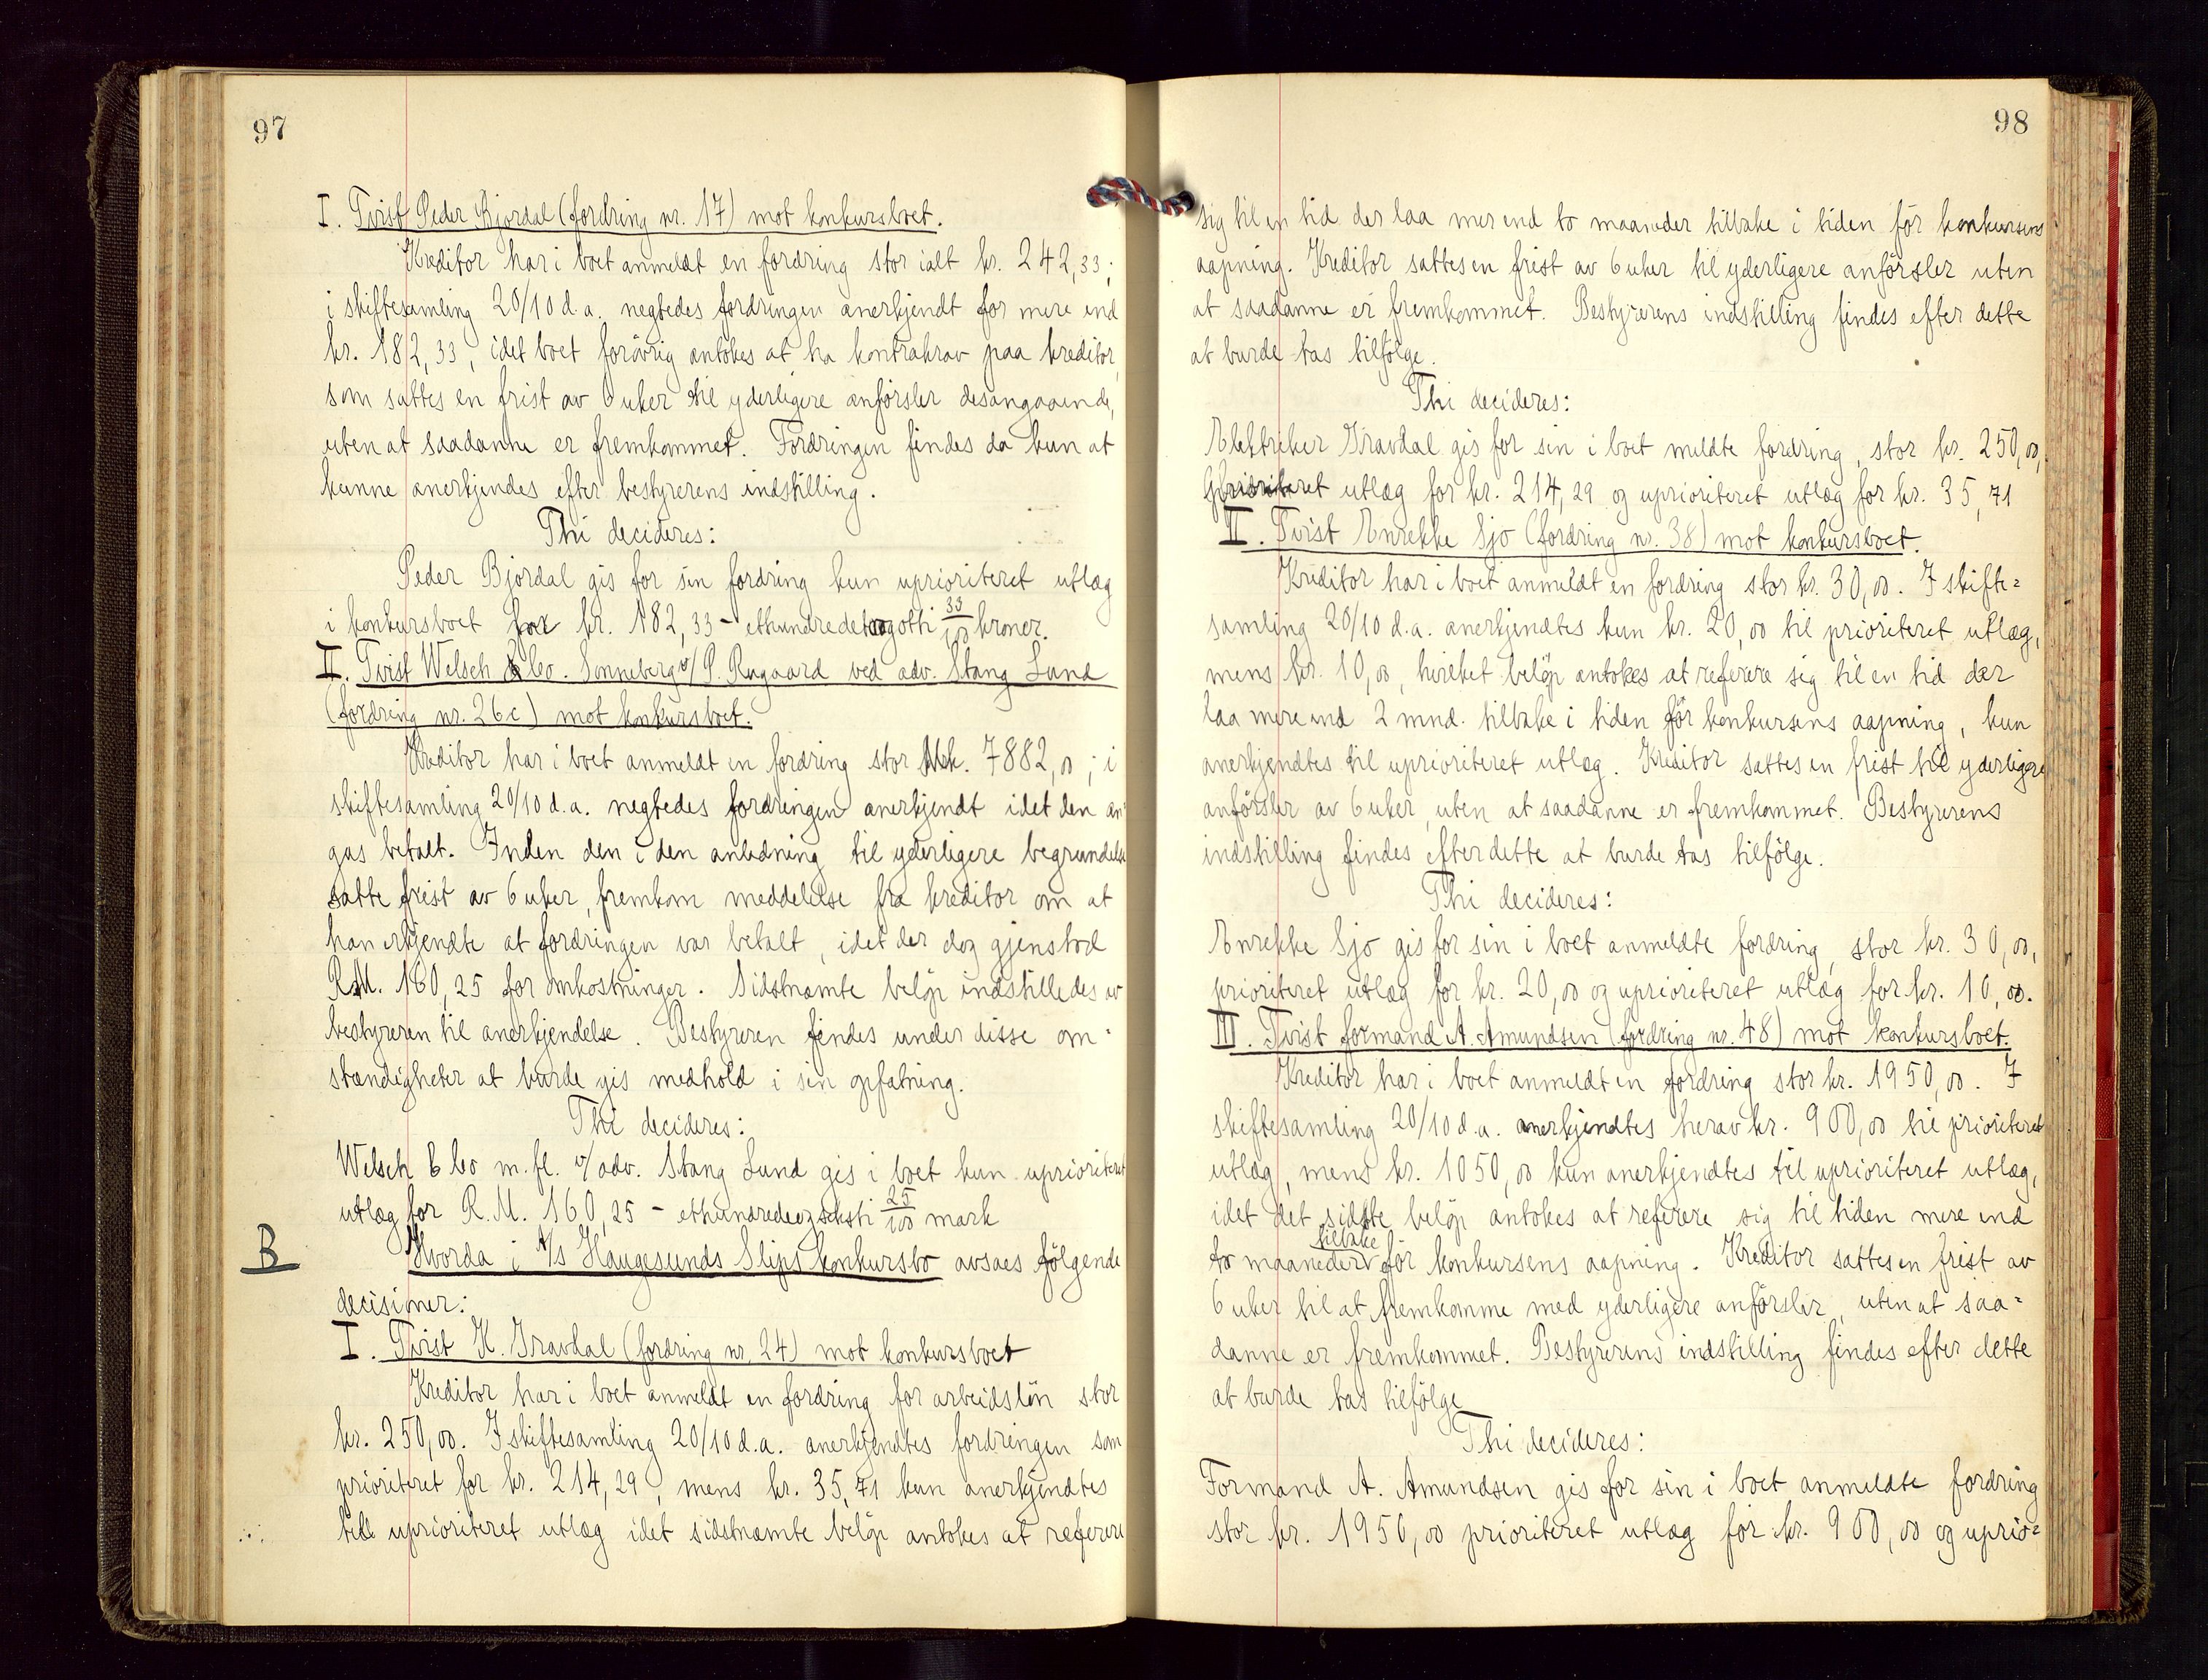 97
I. Tvist Peder Bjordal (fordring nr. 17) mot konkursboet.
Kreditor har i boet anmeldt en fordring stor ialt kr. 242,33;
i skiftesamling 20/10 d.a. negtedes fordringen anerkjendt for mere end
kr. 182,33, idet boet forøvrig antokes at ha kontrakrav paa kreditor,
som sattes en frist av 6 uker til yderligere anførsler desangaaende,
uten at saadanne er fremkommet. Fordringen findes da kun at
kunne anerkjendes efter bestyrerens indstilling.
Thi decideres:
Peder Bjordal gis for sin fordring kun uprioriteret utlæg
i konkursboet for kr. 182,33 - ethundredetoogotti 33/100 kroner.
II. Tvist Welsch & Co. Sonneberg v/ P. Rugaard ved adv. Stang Lund
(fordring nr. 26c) mot konkursboet.
Kreditor har i boet anmeldt en fordring stor Mk. 7882,00; i
skiftesamling 20/10 d.a. negtedes fordringen anerkjendt idet den an-
gas betalt. Inden den i den anledning til yderligere begrundelse
satte frist av 6 uker, fremkom meddelelse fra kreditor om at
han erkjendte at fordringen var betalt, idet der dog gjenstod
R.M. 160,25 for omkostninger. Sidstnæmte beløp indstilledes av
bestyreren til anerkjendelse. Bestyreren findes under disse om-
stændigheter at burde gis medhold i sin opfatning.
Thi decideres:
Welsch & Co m.fl. v/ adv. Stang Lund gis i boet kun uprioriteret
utlæg for R.M. 160,25 - ethundredeogseksti 25/100 mark
B
Hvorda i A/S Haugesunds Slips konkursbo avsaes følgende
decisioner:
I. Tvist K. Gravdal (fordring nr. 24) mot konkursboet
Kreditor har i boet anmeldt en fordring for arbeidsløn stor
kr. 250,00. I skiftesamling 20/10 d.a. anerkjendtes fordringen som
prioriteret for kr. 214,29, mens kr. 35,71 kun anerkjendtes
till uprioriteret utlæg idet sidstnæmte beløp antokes at referere
98
sig til en tid der laa mer end to maaneder tilbake i tiden før konkursens
aapning. Kreditor sattes en frist av 6 uker til yderligere anførsler uten
at saadanne er fremkommet. Bestyrerens indstilling findes efter dette
at burde tas tilfølge.
Thi decideres:
Elektriker Gravdal gis for sin i boet meldte fordring, stor kr. 250,00,
prioriteret utlæg for kr. 214,29 og uprioriteret utlæg for kr. 35,71
II. Tvist Enrekke Sjo (fordring nr. 38) mot konkursboet.
Kreditor har i boet anmeldt en fordring stor kr. 30,00. I skifte=
samling 20/10 d.a. anerkjendtes kun kr. 20,00 til prioriteret utlæg,
mens kr. 10,00, hvilket beløp antokes at referere sig til en tid der
laa mere end 2 mnd. tilbake i tiden før konkursens aapning, kun
anerkjendtes til uprioriteret utlæg. Kreditor sattes en frist til yderligere
anførsler av 6 uker, uten at saadanne er fremkommet. Bestyrerens
indstilling findes efter dette at burde tas tilfølge.
Thi decideres:
Enrekke Sjo gis for sin i boet anmeldte fordring, stor kr. 30,00,
prioriteret utlæg for kr. 20,00 og uprioriteret utlæg for kr. 10,00.
III. Tvist formand A. Amundsen (fordring nr. 48) mot konkursboet.
Kreditor har i boet anmeldt en fordring stor kr. 1950,00. I
skiftesamling 20/10 d.a. anerkjendtes herav kr. 900,00 til prioriteret
utlæg, mens kr. 1050,00 kun anerkjendtes til uprioriteret utlæg,
idet det sidste beløp antokes at referere sig til tiden mere end
to maaneder tilbake før konkursens aapning. Kreditor sattes en frist av
6 uker til at fremkomme med yderligere anførsler, uten at saa=
danne er fremkommet. Bestyrerens indstilling findes efter dette
at burde tas tilfølge
Thi decideres:
Formand A. Amundsen gis for sin i boet anmeldte fordring
stor kr. 1950,00 prioriteret utlæg for kr. 900,00 og uprio=